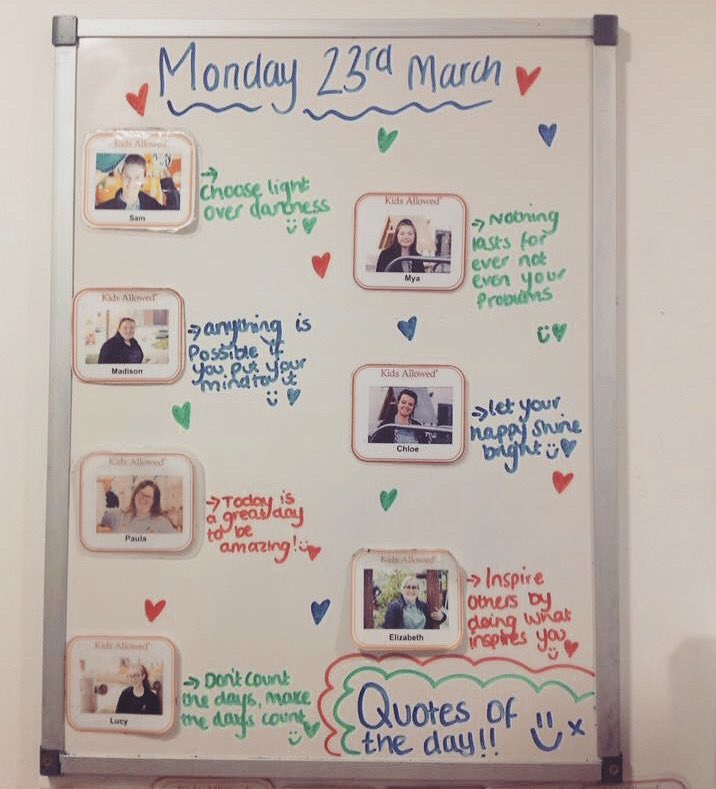 Monday 23rd March
Kids Allowed
Sam
→ Choose light
over darkness
Kids Allowed
Mya
→ Nothing
lasts for
ever not
even your
Problems
Kids Allowed
Madison
→ anything is
Possible if
you put your
mind to it
Kids Allowed
Chloe
→ let your
happy shine
bright
Kids Allowed
Paula
→ Today is
a great day
to be
amazing!
Kids Allowed
Elizabeth
→ Inspire
others by
doing what
inspires you
Kids Allowed
Lucy
→ Don't count
the days, make
the days count
Quotes of
the day!! x
Kids Allowed